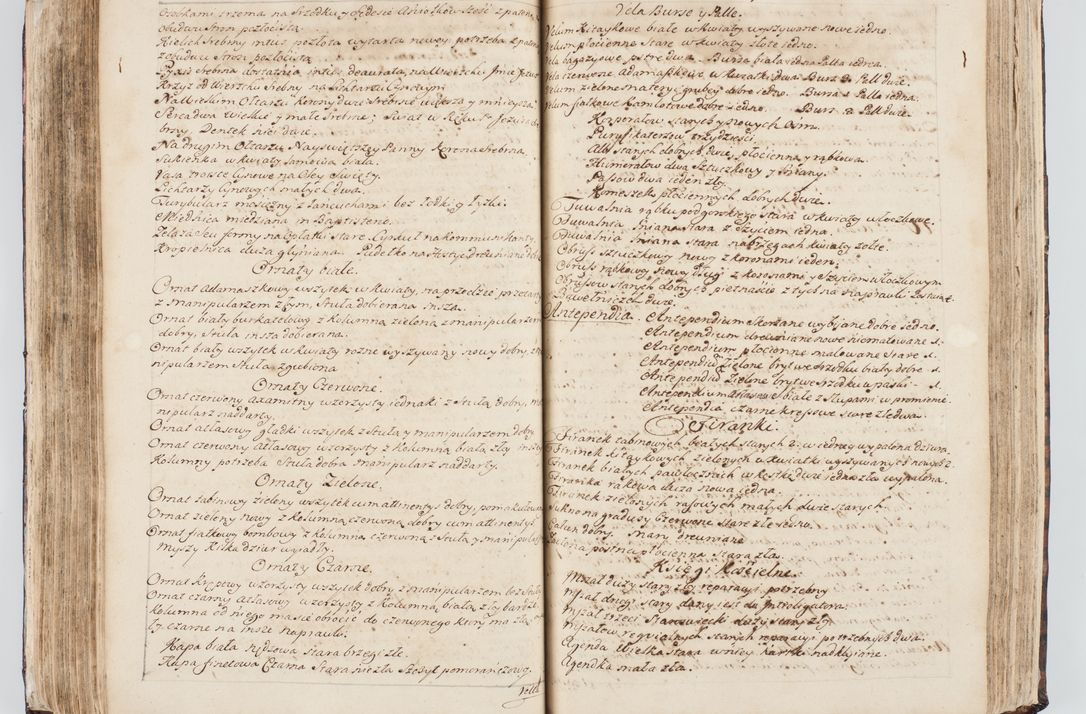 obudwu stron pozłocista
Kielich srebrny intus pozłota wytarta nowey potrzeba z pateną
z obudwu stron pozłocistą
Puszka srebrna dostatnia intus deaurata, na wierzchu Imie Jezus
Krzyż od wierzchu srebrny
Na Wielkim Ołtarzu Korony dwie srebrne większa y mnieysza
Serca dwa wielkie y małe srebrne; Świat w ręku
brny. Dentek sześć dwu.
Na drugim Ołtarzu Nayświętszey Panny Korona srebrna
Sukienka w kwiaty lamowa biała.
Vasa troiste cynowe na Oley Święty.
Lichtarzy cynowych małych dwa
Turybularz mosiężny z łancuchami bez łodki y łyżki.
Miednica miedziana in Baptisterio.
Żelazaku formy na Opłatki stare. Cyrkuł na kommunikanty
Kropielnica duża gliniana. Pudełko na Hostye drewniane
Ornaty białe.
Ornat Adamaszkowy wszytek w kwiaty, na przedzie przetarty
z manipularzem złym, Stuła dobierana insza.
Ornat biały burkatelowy z kolumną zieloną z manipularzem
dobry, Stuła insza dobierana.
Ornat biały wszytek w kwiaty rozne wyszywany nowy dobry, z
nipularzem Stuła zgubiona
Ornaty Czerwone.
Ornat czerwony axamitny wzorzysty iednaki z Stułą dobry, ma
nipularz naddarty.
Ornat atłasowy gładki wszytek z Stułą y manipularzem dobry
Ornat czerwony atłasowy wzorzysty z kolumną białą zły inszey
Kolumny potrzeba Stuła dobra manipularz naddarty.
Ornaty Zielone.
Ornat tabinowy zielony wszytek cum attinentys dobry, pomakulowa
Ornat zielony nowy z kolumną czerwoną dobry cum attinentys
Ornat fiałkowy bombowy z kolumną czerwoną Stułą y manipular
myszy kilka dziur wyiadły.
Ornaty Czarne.
Ornat Kropowy wzorzysty wszytek dobry z manipularzem bez Stuły
Ornat czarny atłasowy wzorzysty z kolumną białą zły bardzo
kolumna od niego ma sie obrocić do czerwonego ktory ma złą
by czarne na insze naprawić.
Kapa biała kidzowa stara brzegi złe.
Kapa finetowa Czarna stara niezła Szczyt pomoranczowy.
Vella
Vela Burse y Palle.
Velum Kitaykowe białe w kwiaty wyszywane nowe iedno.
Velum płocienne stare w kwiaty złote iedno.
Vela bagazyowe pstre dwa. Bursa biała iedna Palla iedna.
Vela czerwone Adamaszkowe w kwiatki dwa Bursy 2. Palli dwie.
Velum zielone materyi grubey dobre iedno. Bursa 1. Palla iedna.
Velum fiałkowe Kamlotowe dobre iedno. Burs 2. Palli dwie.
Korporałow starych y nowych Osm.
Puryfikaterzow trzydzieści
Alb starych dobrych dwie, płocienna y rąbkowa.
Humerałow dwa Sztuczkowy y Iniany.
Pasow dwa ieden zły.
Komeszek płociennych dobrych dwie.
Tuwalnia rąbku podgorskiego stara w kwiaty włoczkowe.
Duwalnia lniana stara z szyciem iedna.
Duwalnia lniana stara na brzegach kwiaty żołte.
Obrus sztuczkowy nowy z koronami ieden.
Obrus rąbkowy nowy długi z koronami y szyciem włoczkowym
Obrusow starych dobrych piętnaście z tych na naprawki zostawić
Bawełniczek dwie.
Antependia. Antependium Skorzane wybijane dobre iedno.
Antependium drewniane nowe niemalowane 1.
Antependium płocienne malowane stare 1.
Antependiu Zielone bryt we srzodku biały dobre 1.
Antependiu Zielone bryt we srzodku w paski 1.
Antependium Atłasowe białe z słupami w promienie.
Antependia czarne krepowe stare zle dwa.
Firanki.
Firanek tabinowych białych starych 2. w iedney wypalona dziura.
Firanek kitaykowych zielonych w kwiatki wyszywanych nowych 2.
Firanek białych pawłoczkich w kostki dwie iedna zła wypalona.
Firanka rąkowa duża nowa iedna.
Firanek zielonych rasowych małych dwie starych.
Sukno na gradusy Czerwone stare złe iedno.
Całun dobry. Mary drewniane.
Zasłona postna płocienna stara zła.
Księgi Kościelne.
Mszał duży stary zły reparacyi potrzebny
Mszał drugi stary dany iest do Introligatora.
Mszał trzeci Starowiecki duży stary zły.
Mszałow requialnych starych reparacyi potrzebnych dwa.
Agenda Wielka stara w niey kartki nadklijone.
Agendka mała zła.